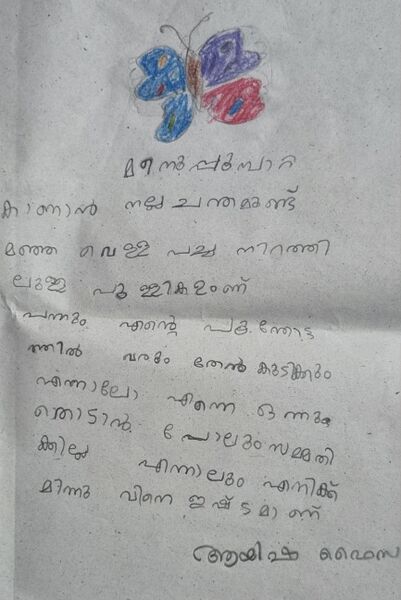 മിന്നുപ്പൂമ്പാറ്റ
കാണാൻ നല്ല ചന്തമുണ്ട്
മഞ്ഞ വെള്ള പച്ച നിറത്തി
ലുള്ള പുള്ളികളുണ്ട്
പന്നും എന്റെ പൂന്തോട്ട
ത്തിൽ വരും തേൻ കുടിക്കും
എന്നാലോ എന്നെ ഒന്നും
തൊടാൻ പോലും സമ്മതി
ക്കില്ല എന്നാലും എനിക്ക്
മിന്നു വിനെ ഇഷ്ടമാണ്
ആയിഷ ഫൈസ